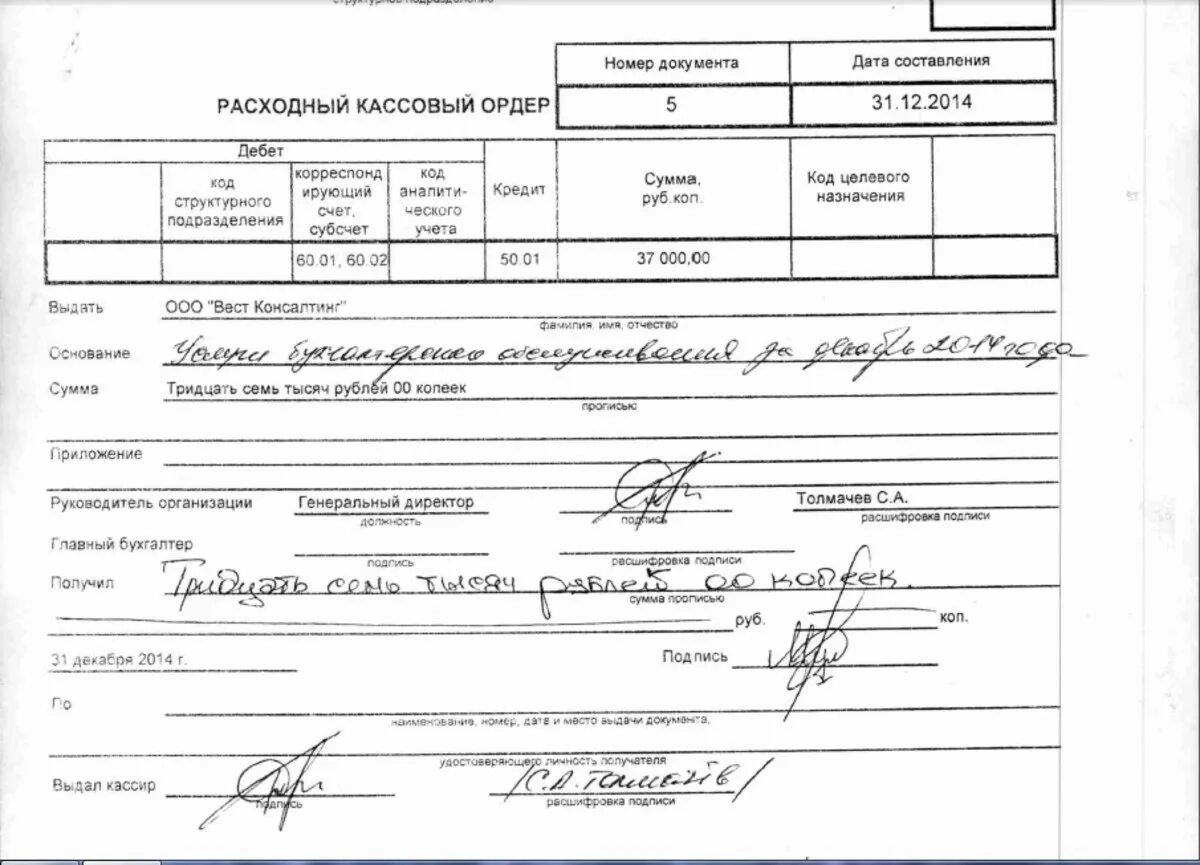 структурное подразделение
Номер документа Дата составления
РАСХОДНЫЙ КАССОВЫЙ ОРДЕР 5 31.12.2014
Дебет Кредит Сумма, руб.коп. Код целевого назначения
код структурного подразделения
корреспонд ирующий счет, субсчет
код аналити- ческого учета
60.01, 60.02 50.01 37 000,00
Выдать ООО "Вест Консалтинг"
фамилия, имя, отчество
Основание Услуги бухгалтерского обслуживания за декабрь 2014 года
Сумма Тридцать семь тысяч рублей 00 копеек
прописью
Приложение
Руководитель организации Генеральный директор Толмачев С.А.
должность подпись расшифровка подписи
Главный бухгалтер
подпись расшифровка подписи
Получил Тридцать семь тысяч рублей 00 копеек.
сумма прописью
руб. коп.
31 декабря 2014 г. Подпись
По
наименование, номер, дата и место выдачи документа,
удостоверяющего личность получателя
Выдал кассир /С.А.Толмачёв/
подпись расшифровка подписи